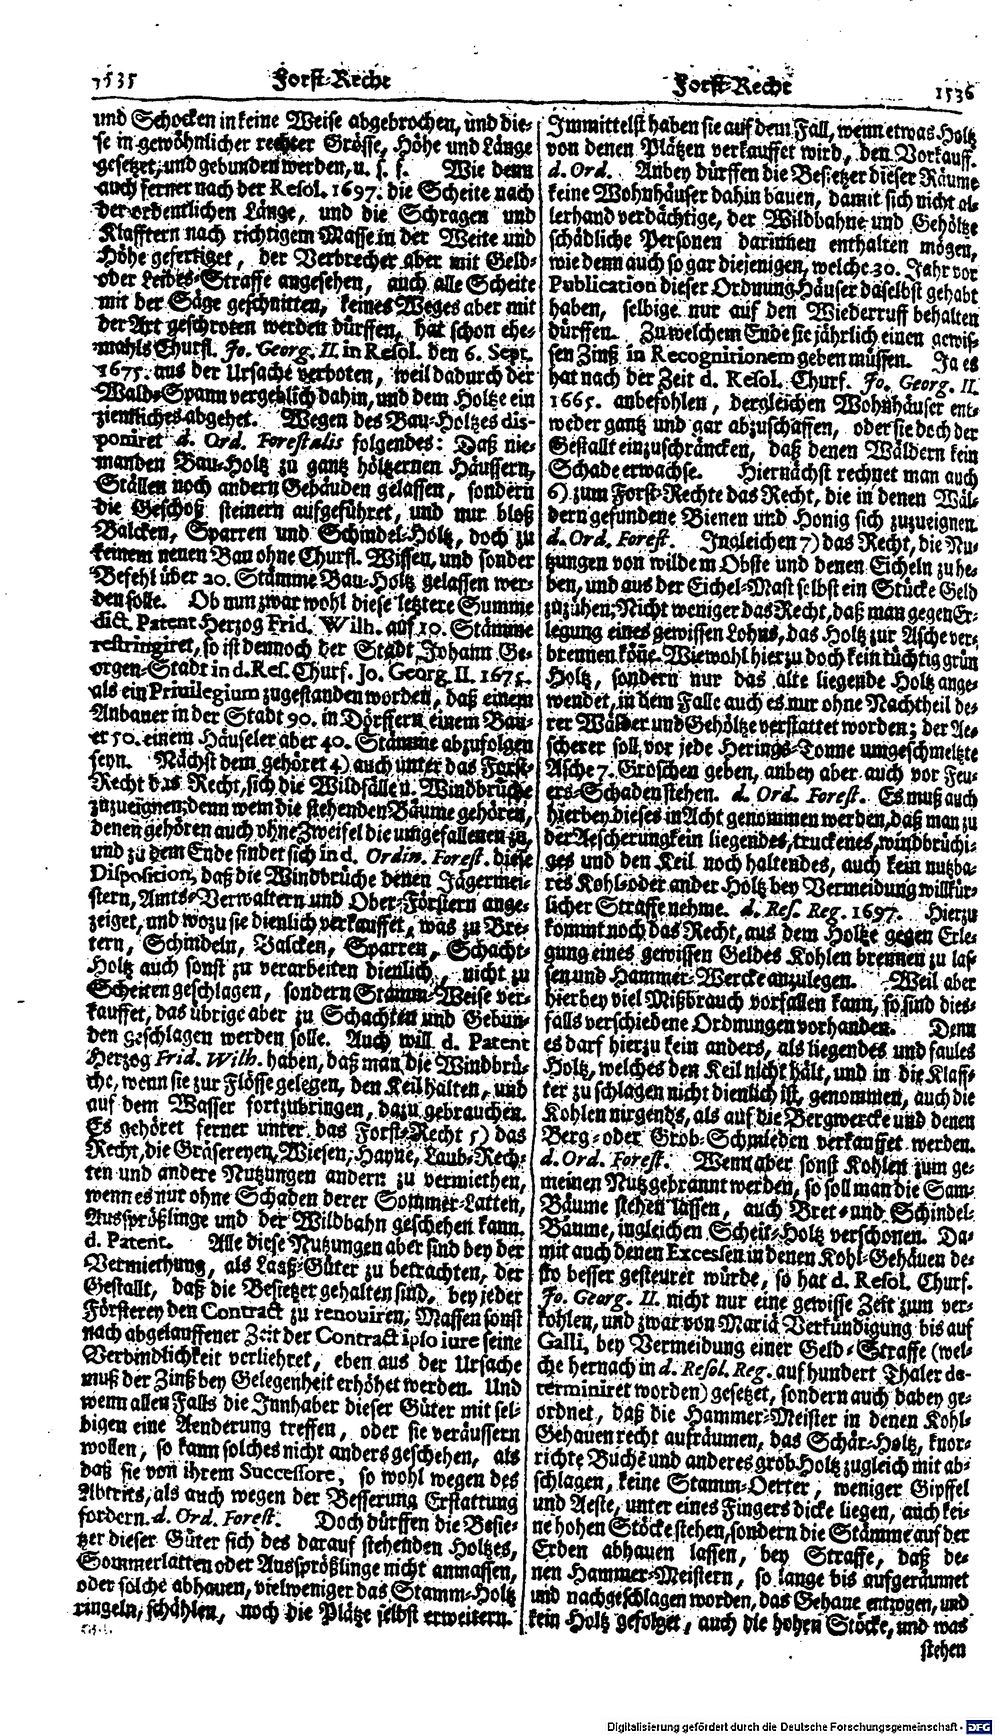 1535 Forst-Recht
Forst-Recht 1536
und Schocken in keine Weise abgebrochen, und die-
se in gewöhnlicher rechter Grösse, Höhe und Länge
gesetzet, und gebunden werden, u. s. f. Wie denn
auch ferner nach der Resol. 1697. die Scheite nach
der ordentlichen Länge, und die Schragen und
Klafftern nach richtigem Masse in der Weite und
Höhe gefertiget, der Verbrecher aber mit Geld-
oder Leibes-Straffe angesehen, auch alle Scheite
mit der Säge geschnitten, keines Weges aber mit
der Art geschroten werden dürffen, hat schon ehe-
mahls Churfl. Jo. Georg. II. in Resol. den 6. Sept.
1675. aus der Ursache verboten, weil dadurch der
Wald-Spann vergeblich dahin, und dem Holtze ein
ziemliches abgehet. Wegen des Bau-Holtzes dis-
poniret d. Ord. Forestalis folgendes: Daß nie-
manden Bau-Holtz zu gantz höltzernen Häussern,
Ställen noch andern Gebäuden gelassen, sondern
die Geschoß steinern aufgeführet, und nur bloß
Balcken, Sparren und Schindel-Holtz, doch zu
keinem neuen Bau ohne Churfl. Wissen, und sonder
Befehl über 20. Stämme Bau-Holtz gelassen wer-
den solle. Ob nun zwar wohl diese letztere Summe
dict. Patent Herzog Frid. Wilh. auf 10. Stämme
restringiret, so ist dennoch der Stadt Johann Ge-
orgen-Stadt in d. Res. Churf. Jo. Georg II. 1675.
als ein Privilegium zugestanden worden, daß einem
Anbauer in der Stadt 90. in Dörffern einem Bau-
er 50. einem Häuseler aber 40. Stämme abzufolgen
seyn. Nächst dem gehöret 4) auch unter das Forst-
Recht das Recht, sich die Wildfälle u. Windbrüche
zuzueignen; denn wem die stehenden Bäume gehören,
denen gehören auch ohne Zweifel die umgefallenen zu,
und zu dem Ende findet sich in d. Ordin. Forest. diese
Disposition, daß die Windbrüche denen Jägermei-
stern, Amts-Verwaltern und Ober-Förstern ange-
zeiget, und wozu sie dienlich verkauffet, was zu Bre-
tern, Schindeln, Balcken, Sparren, Schacht-
Holtz auch sonst zu verarbeiten dienlich, nicht zu
Scheiten geschlagen, sondern Stamm-Weise ver-
kauffet, das übrige aber zu Schachten und Gebun-
den geschlagen werden solle. Auch will d. Patent
Herzog Frid. Wilh. haben, daß man die Windbrü-
che, wenn sie zur Flösse gelegen, den Keil halten, und
auf dem Wasser fortzubringen, dazu gebrauchen.
Es gehöret ferner unter das Forst-Recht 5) das
Recht, die Gräsereyen, Wiesen, Hayne, Laub-Rech-
ten und andere Nutzungen andern zu vermiethen,
wenn es nur ohne Schaden derer Sommer-Latten,
Aussprößlinge und der Wildbahn geschehen kann.
d. Patent. Alle diese Nutzungen aber sind bey der
Vermiethung, als Laaß-Güter zu betrachten, der
Gestallt, daß die Besietzer gehalten sind, bey jeder
Försterey den Contract zu renoviren, Massen sonst
nach abgelauffener Zeit der Contract ipso iure seine
Verbindlichkeit verliehret, eben aus der Ursache
muß der Zinß bey Gelegenheit erhöhet werden. Und
wenn allen Falls die Innhaber dieser Güter mit sel-
bigen eine Aenderung treffen, oder sie veräussern
wollen, so kann solches nicht anders geschehen, als
daß sie von ihrem Successore, so wohl wegen des
Abtrits, als auch wegen der Besserung Erstattung
fordern. d. Ord. Forest. Doch dürffen die Besie-
tzer dieser Güter sich des darauf stehenden Holtzes,
Sommerlatten oder Aussprößlinge nicht anmassen,
oder solche abhauen, vielweniger das Stamm-Holtz
ringeln, schählen, noch die Plätze selbst erweitern.
Immittelst haben sie auf dem Fall, wenn etwas Holtz
von denen Plätzen verkauffet wird, den Vorkauff.
d. Ord. Anbey dürffen die Besietzer dieser Räume
keine Wohnhäuser dahin bauen, damit sich nicht al-
lerhand verdächtige, der Wildbahne und Gehöltze
schädliche Personen darinnen enthalten mögen,
wie denn auch so gar diejenigen, welche 30. Jahr vor
Publication dieser Ordnung Häuser daselbst gehabt
haben, selbige nur auf den Wiederruff behalten
dürffen. Zu welchem Ende sie jährlich einen gewis-
sen Zinß in Recognitionem geben müssen. Ja es
hat nach der Zeit d. Resol. Churf. Jo. Georg. II.
1665. anbefohlen, dergleichen Wohnhäuser ent-
weder gantz und gar abzuschaffen, oder sie doch der
Gestallt einzuschräncken, daß denen Wäldern kein
Schade erwachse. Hiernächst rechnet man auch
6) zum Forst-Rechte das Recht, die in denen Wäl-
dern gefundene Bienen und Honig sich zuzueignen
d. Ord. Forest. Ingleichen 7) das Recht, die Nu-
tzungen von wildem Obste und denen Eicheln zu he-
ben, und aus der Eichel-Mast selbst ein Stücke Geld
zuzühen; Nicht weniger das Recht, daß man gegen Er-
legung eines gewissen Lohns, das Holtz zur Asche ver-
brennen köñe. Wiewohl hierzu doch kein tüchtig grün
Holtz, sondern nur das alte liegende Holtz ange-
wendet, in dem Falle auch es nur ohne Nachtheil de-
rer Wälder und Gehöltze verstattet worden; der Ae-
scherer soll vor jede Herings-Tonne umgeschmeltzte
Asche 7. Groschen geben, anbey aber auch vor Feu-
ers-Schaden stehen. d. Ord. Forest. Es muß auch
hierbey dieses in Acht genommen werden, daß man zu
der Aescherung kein liegendes, truckenes, windbrüchi-
ges und den Keil noch haltendes, auch kein nutzba-
res Kohl- oder ander Holtz bey Vermeidung willkür-
licher Straffe nehme. d. Res. Reg. 1697. Hierzu
kommt noch das Recht, aus dem Holtze gegen Erle-
gung eines gewissen Geldes Kohlen brennen zu las-
sen und Hammer-Wercke anzulegen. Weil aber
hierbey viel Mißbrauch vorfallen kann, so sind dies-
falls verschiedene Ordnungen vorhanden. Denn
es darf hierzu kein anders, als liegendes und faules
Holtz, welches den Keil nicht hält, und in die Klaff-
ter zu schlagen nicht dienlich ist, genommen, auch die
Kohlen nirgends, als auf die Bergwercke und denen
Berg- oder Grob-Schmieden verkauffet werden.
d. Ord. Forest. Wenn aber sonst Kohlen zum ge-
meinen Nutz gebrannt werden, so soll man die Sam-
Bäume stehen lassen, auch Bret- und Schindel-
Bäume, ingleichen Scheit-Holtz verschonen. Da-
mit auch denen Excessen in denen Kohl-Gehäuen de-
sto besser gesteuret würde, so hat d. Resol. Churf.
Jo. Georg. II. nicht nur eine gewisse Zeit zum ver-
kohlen, und zwar von Mariä Verkündigung bis auf
Galli, bey Vermeidung einer Geld-Straffe (wel-
che hernach in d. Resol. Reg. auf hundert Thaler de-
terminiret worden) gesetzet, sondern auch dabey ge-
ordnet, daß die Hammer-Meister in denen Kohl-
Gehauen recht aufräumen, das Schär-Holtz, knor-
richte Buche und anderes grob Holtz zugleich mit ab-
schlagen, keine Stamm-Oerter, weniger Gipffel
und Aeste, unter eines Fingers dicke liegen, auch kei-
ne hohen Stöcke stehen, sondern die Stämme auf der
Erden abhauen lassen, bey Straffe, daß de-
nen Hammer-Meistern, so lange bis aufgeräumet
und nachgeschlagen worden, das Gehaue entzogen, und
kein Holtz gefolget, auch die hohen Stöcke, und was
stehen
Digitalisierung gefördert durch die Deutsche Forschungsgemeinschaft - DFG